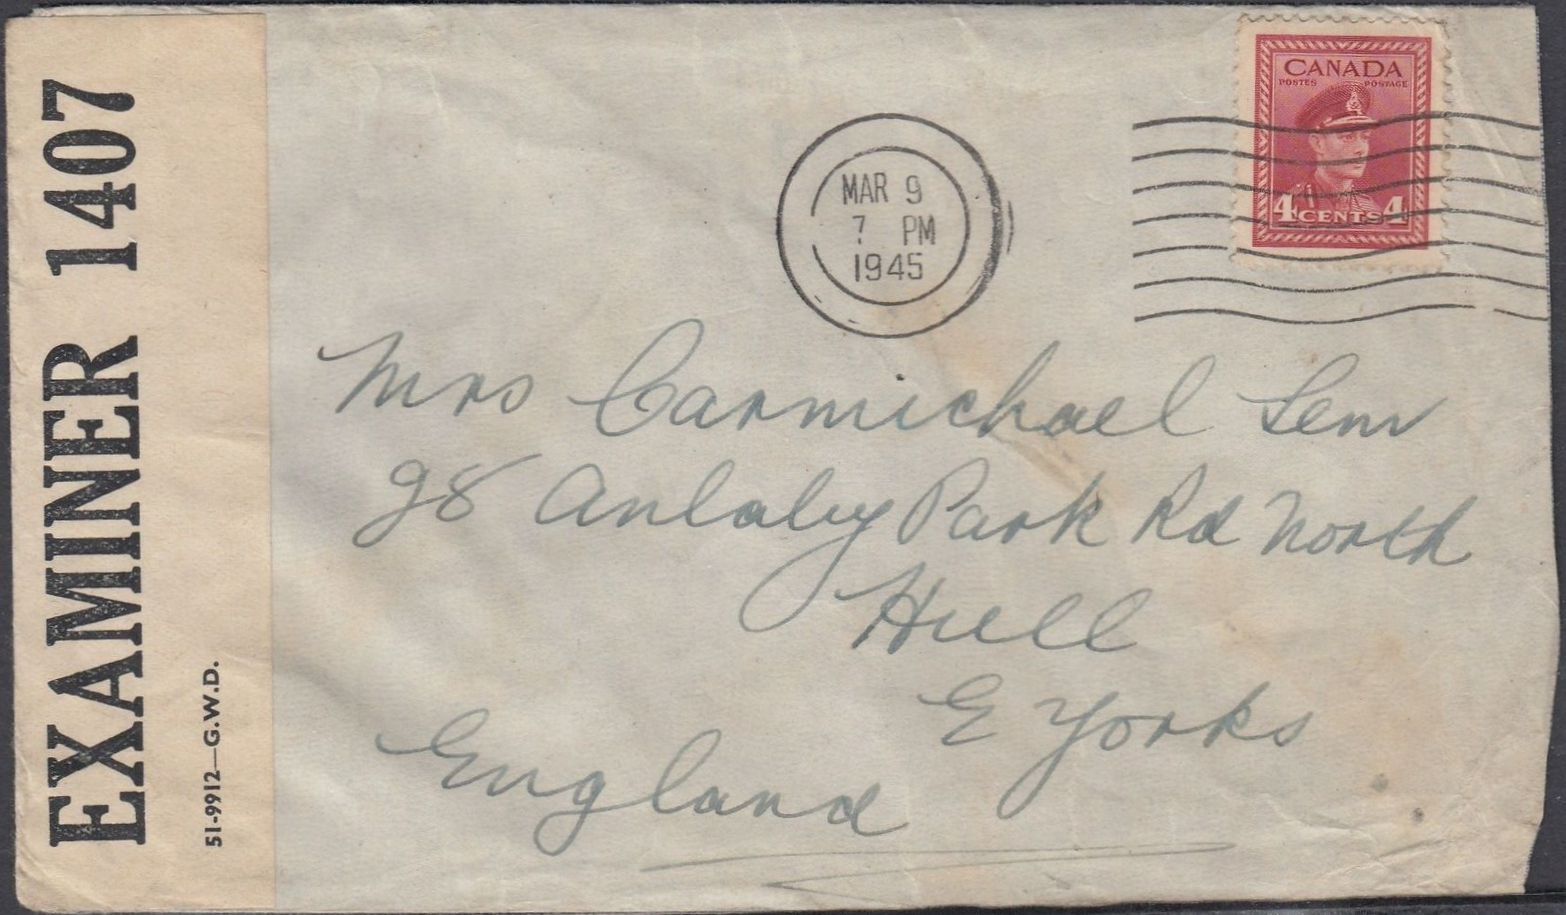 EXAMINER 1407
51-9912—G.W.D.
MAR 9
7 PM
1945
CANADA
POSTES POSTAGE
4 CENTS 4
Mrs Carmichael Senr
98 Anlaby Park Rd North
Hull
E Yorks
England